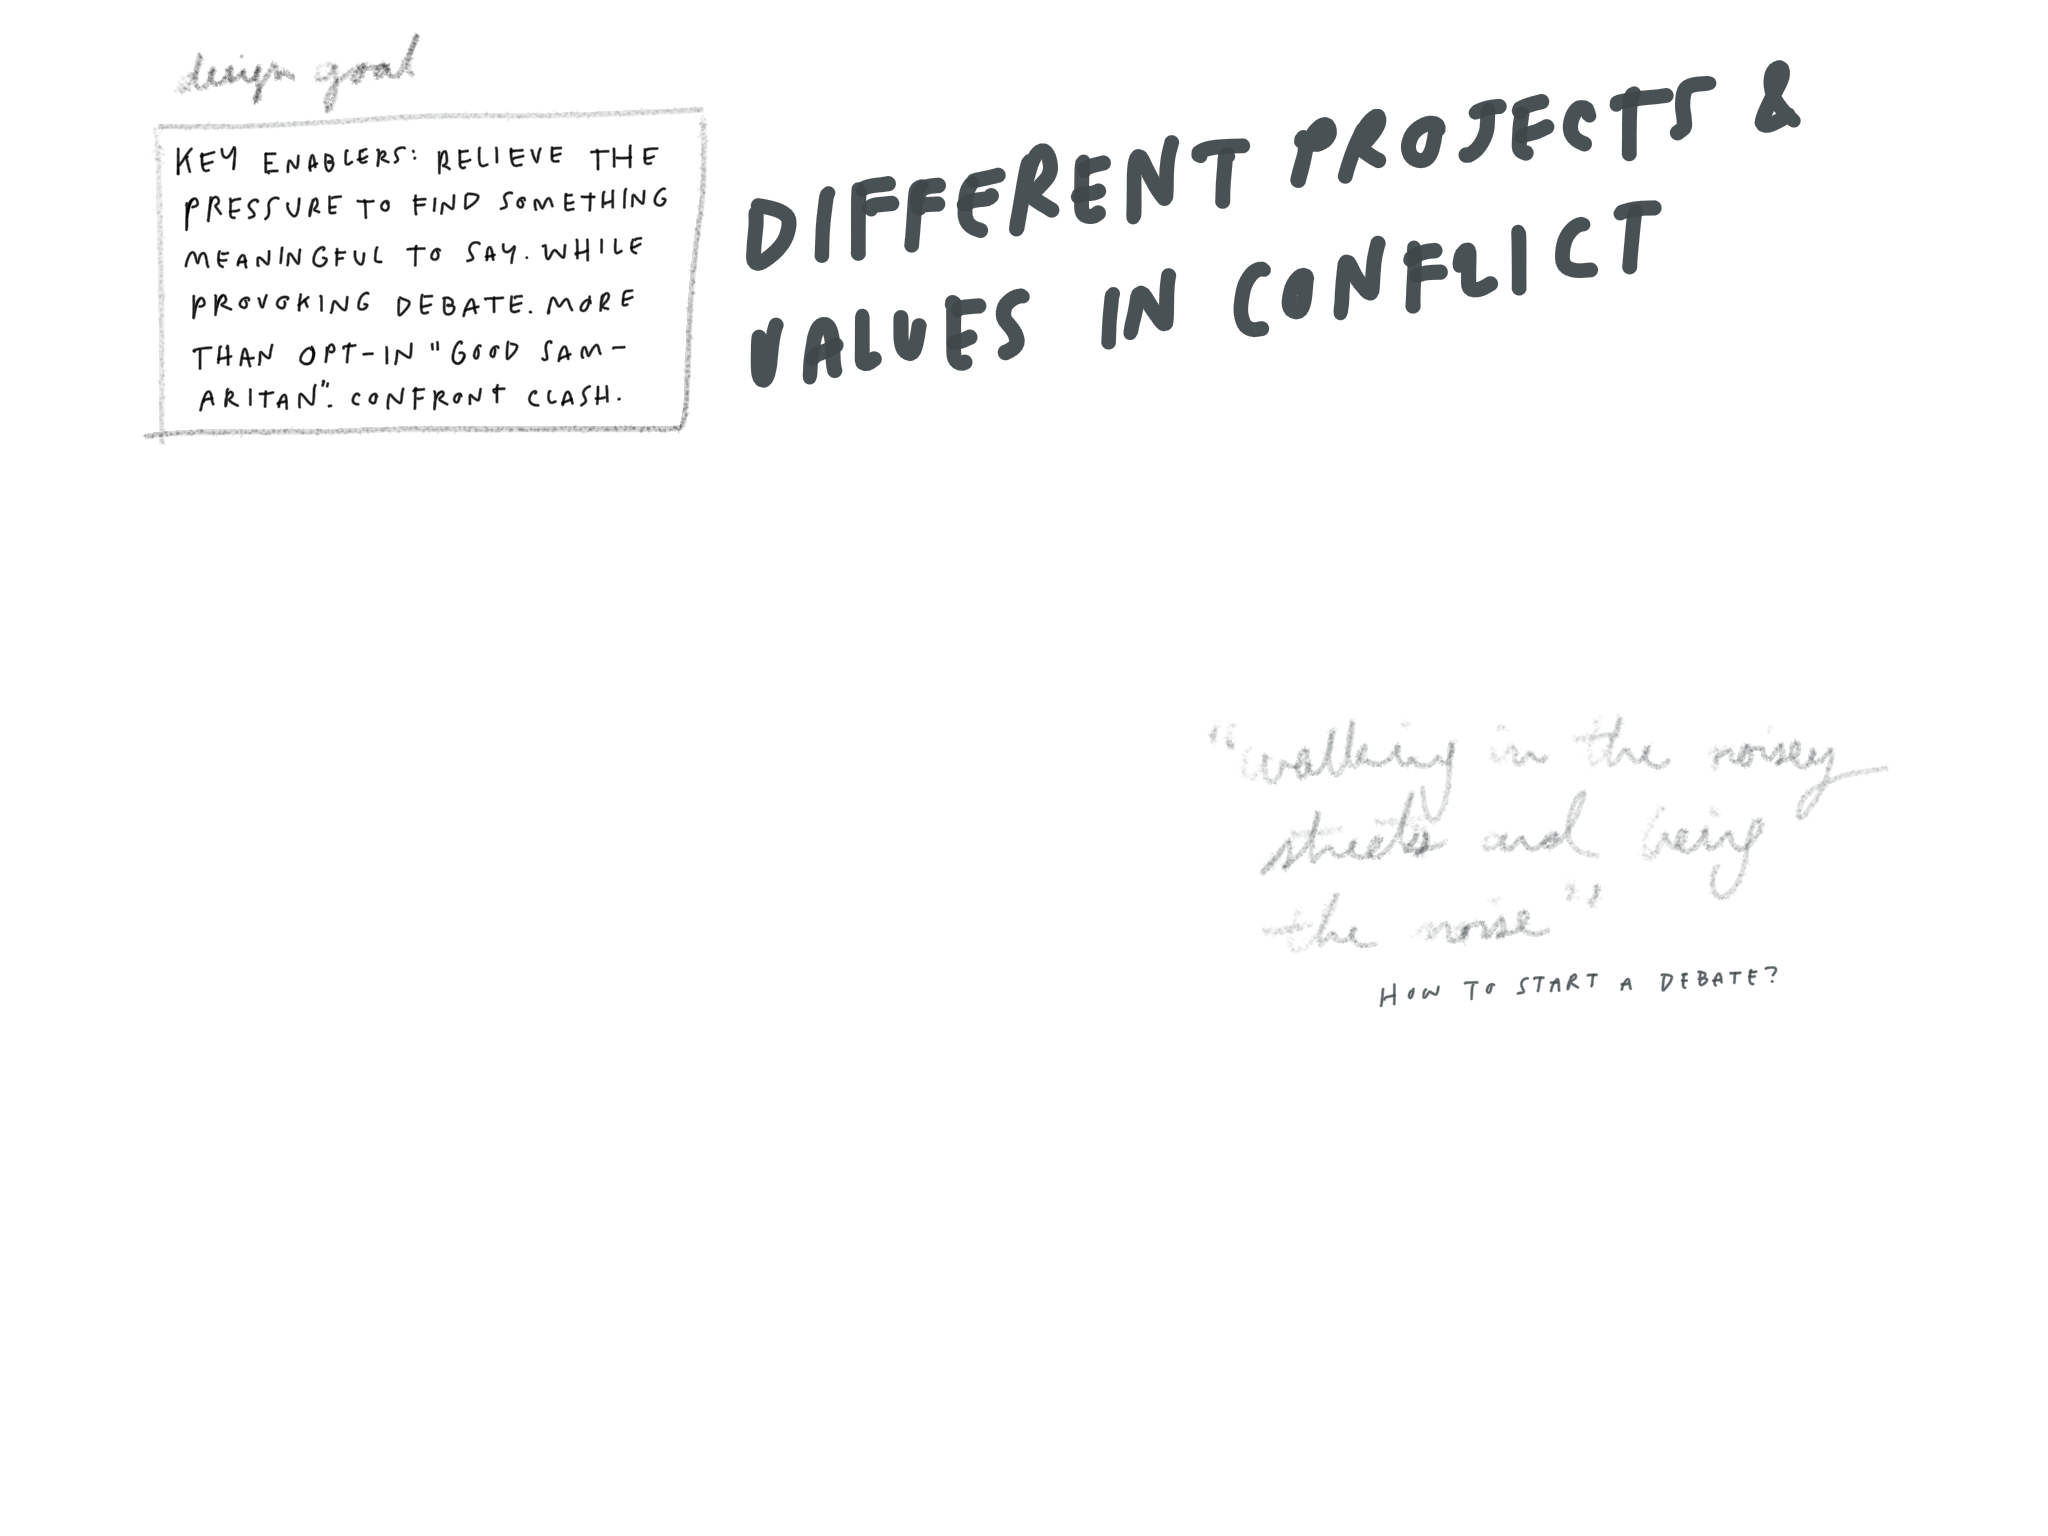 design goal
KEY ENABLERS: RELIEVE THE
PRESSURE TO FIND SOMETHING
MEANINGFUL TO SAY. WHILE
PROVOKING DEBATE. MORE
THAN OPT-IN "GOOD SAM-
ARITAN". CONFRONT CLASH.
DIFFERENT PROJECTS &
VALUES IN CONFLICT
"walking in the noisey
streets and being
the noise"
HOW TO START A DEBATE?